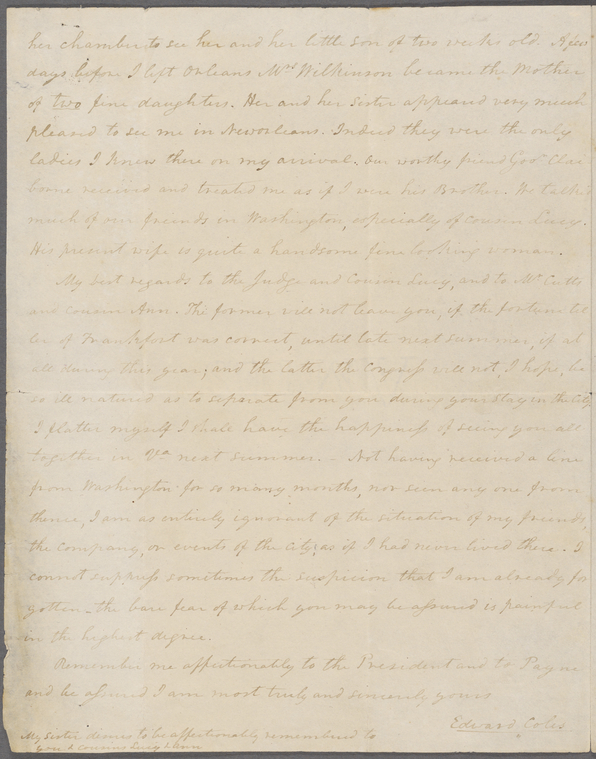 her chamber to see her and her little son of two weeks old. A few
days before I left Orleans Mrs Wilkinson became the Mother
of two fine daughters. Her and her sister appeared very much
pleased to see me in Neworleans. Indeed they were the only
ladies I knew there on my arrival. Our worthy friend Govr Clai
borne received and treated me as if I were his Brother. We talked
much of our friends in Washington, especially of cousin Lucy.
His present wife is quite a handsome fine looking woman.
My best regards to the Judge and Cousin Lucy, and to Mr Cutts
and cousin Ann. The former will not leave you, if the fortunetel
ler of Frankfort was correct, until late next summer, if at
all during this year; and the latter the Congress will not, I hope, be
so ill natured as to separate from you during your stay in the City
I flatter myself I shall have the happiness of seeing you all
together in Va next summer. - Not having received a line
from Washington for so many months, nor seen any one from
thence, I am as entirely ignorant of the situation of my friends,
the company, or events of the city, as if I had never lived there. I
cannot suppress sometimes the suspicion that I am already for
gotten - the bare fear of which you may be assured is painful
in the highest degree.
Remember me affectionately to the President and to Payne
and be assured I am most truly and sincerely yours
Edward Coles
My sister desires to be affectionately remembered to
you & cousins Lucy & Ann